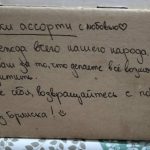 ки ассорти с любовью♡
всего нашего народа,
за то, что делаете всё возмож
себя, возвращайтесь с по
из Брянска!